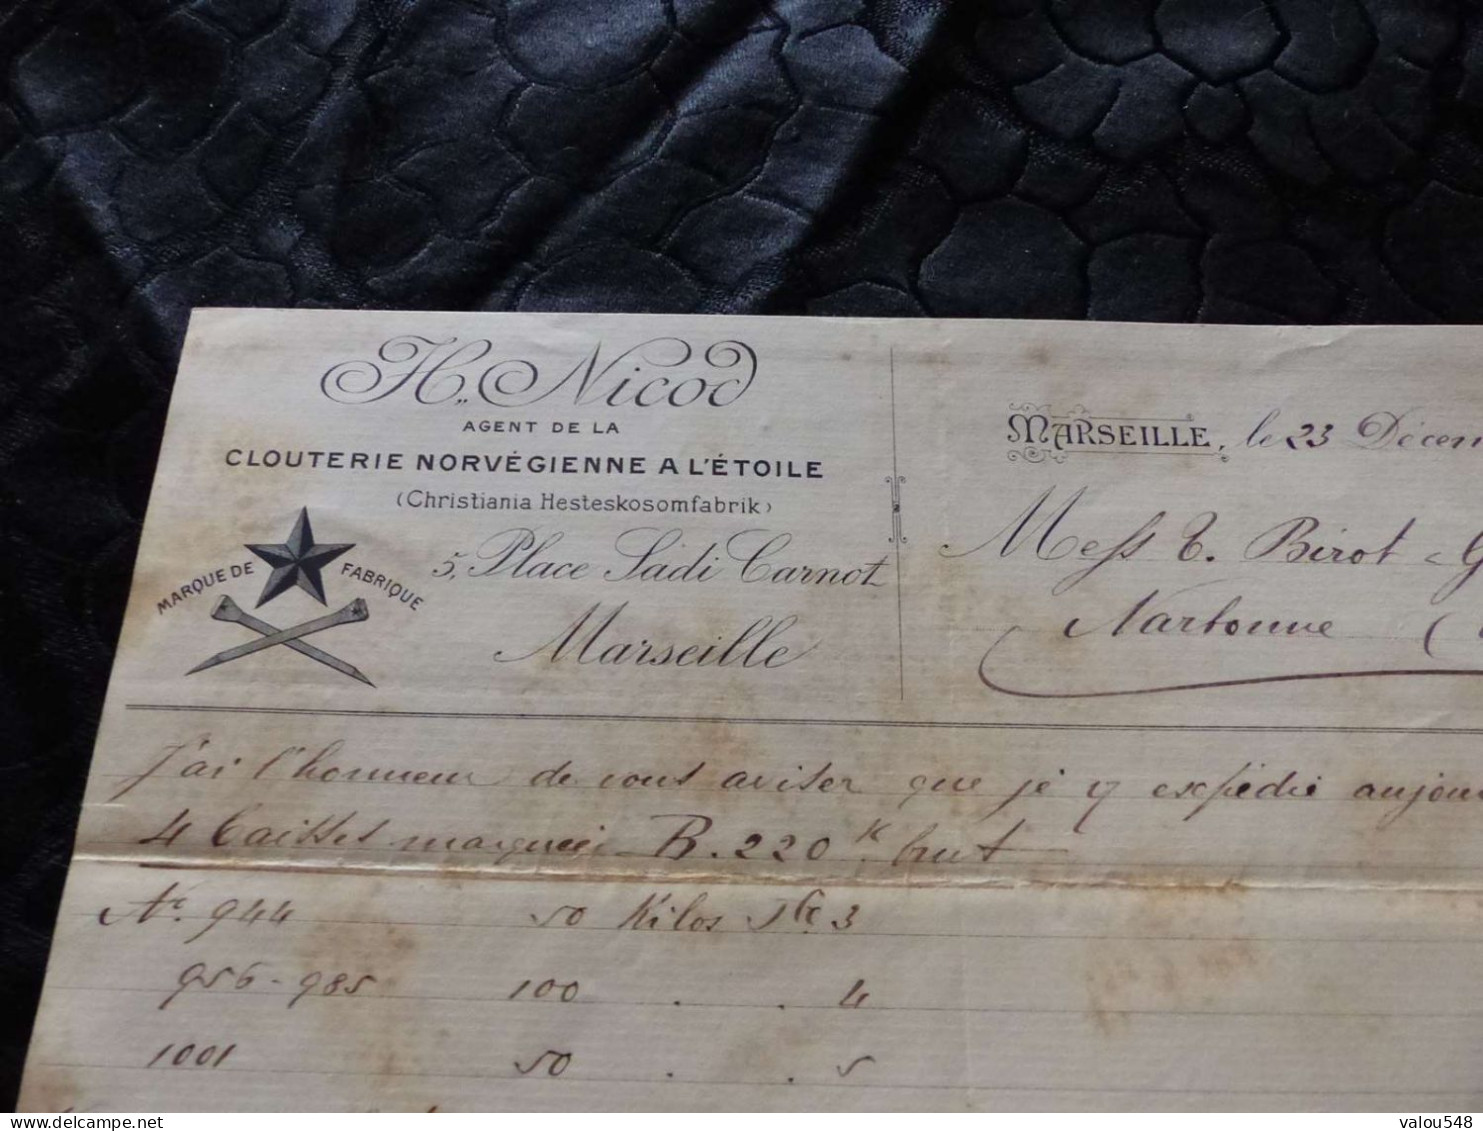 H. Nicod
AGENT DE LA
CLOUTERIE NORVÉGIENNE A L'ÉTOILE
(Christiania Hesteskosomfabrik)
MARQUE DE FABRIQUE
5, Place Sadi Carnot
Marseille
MARSEILLE, le 23 Décem
Mess Birot
Narbonne (
J'ai l'honneur de vous aviser que je y expédié aujour
4 Caisses marquées B. 220 K. brut
No. 944 50 Kilos 3
956-985 100 . . 4
1001 50 . . 5
valou548